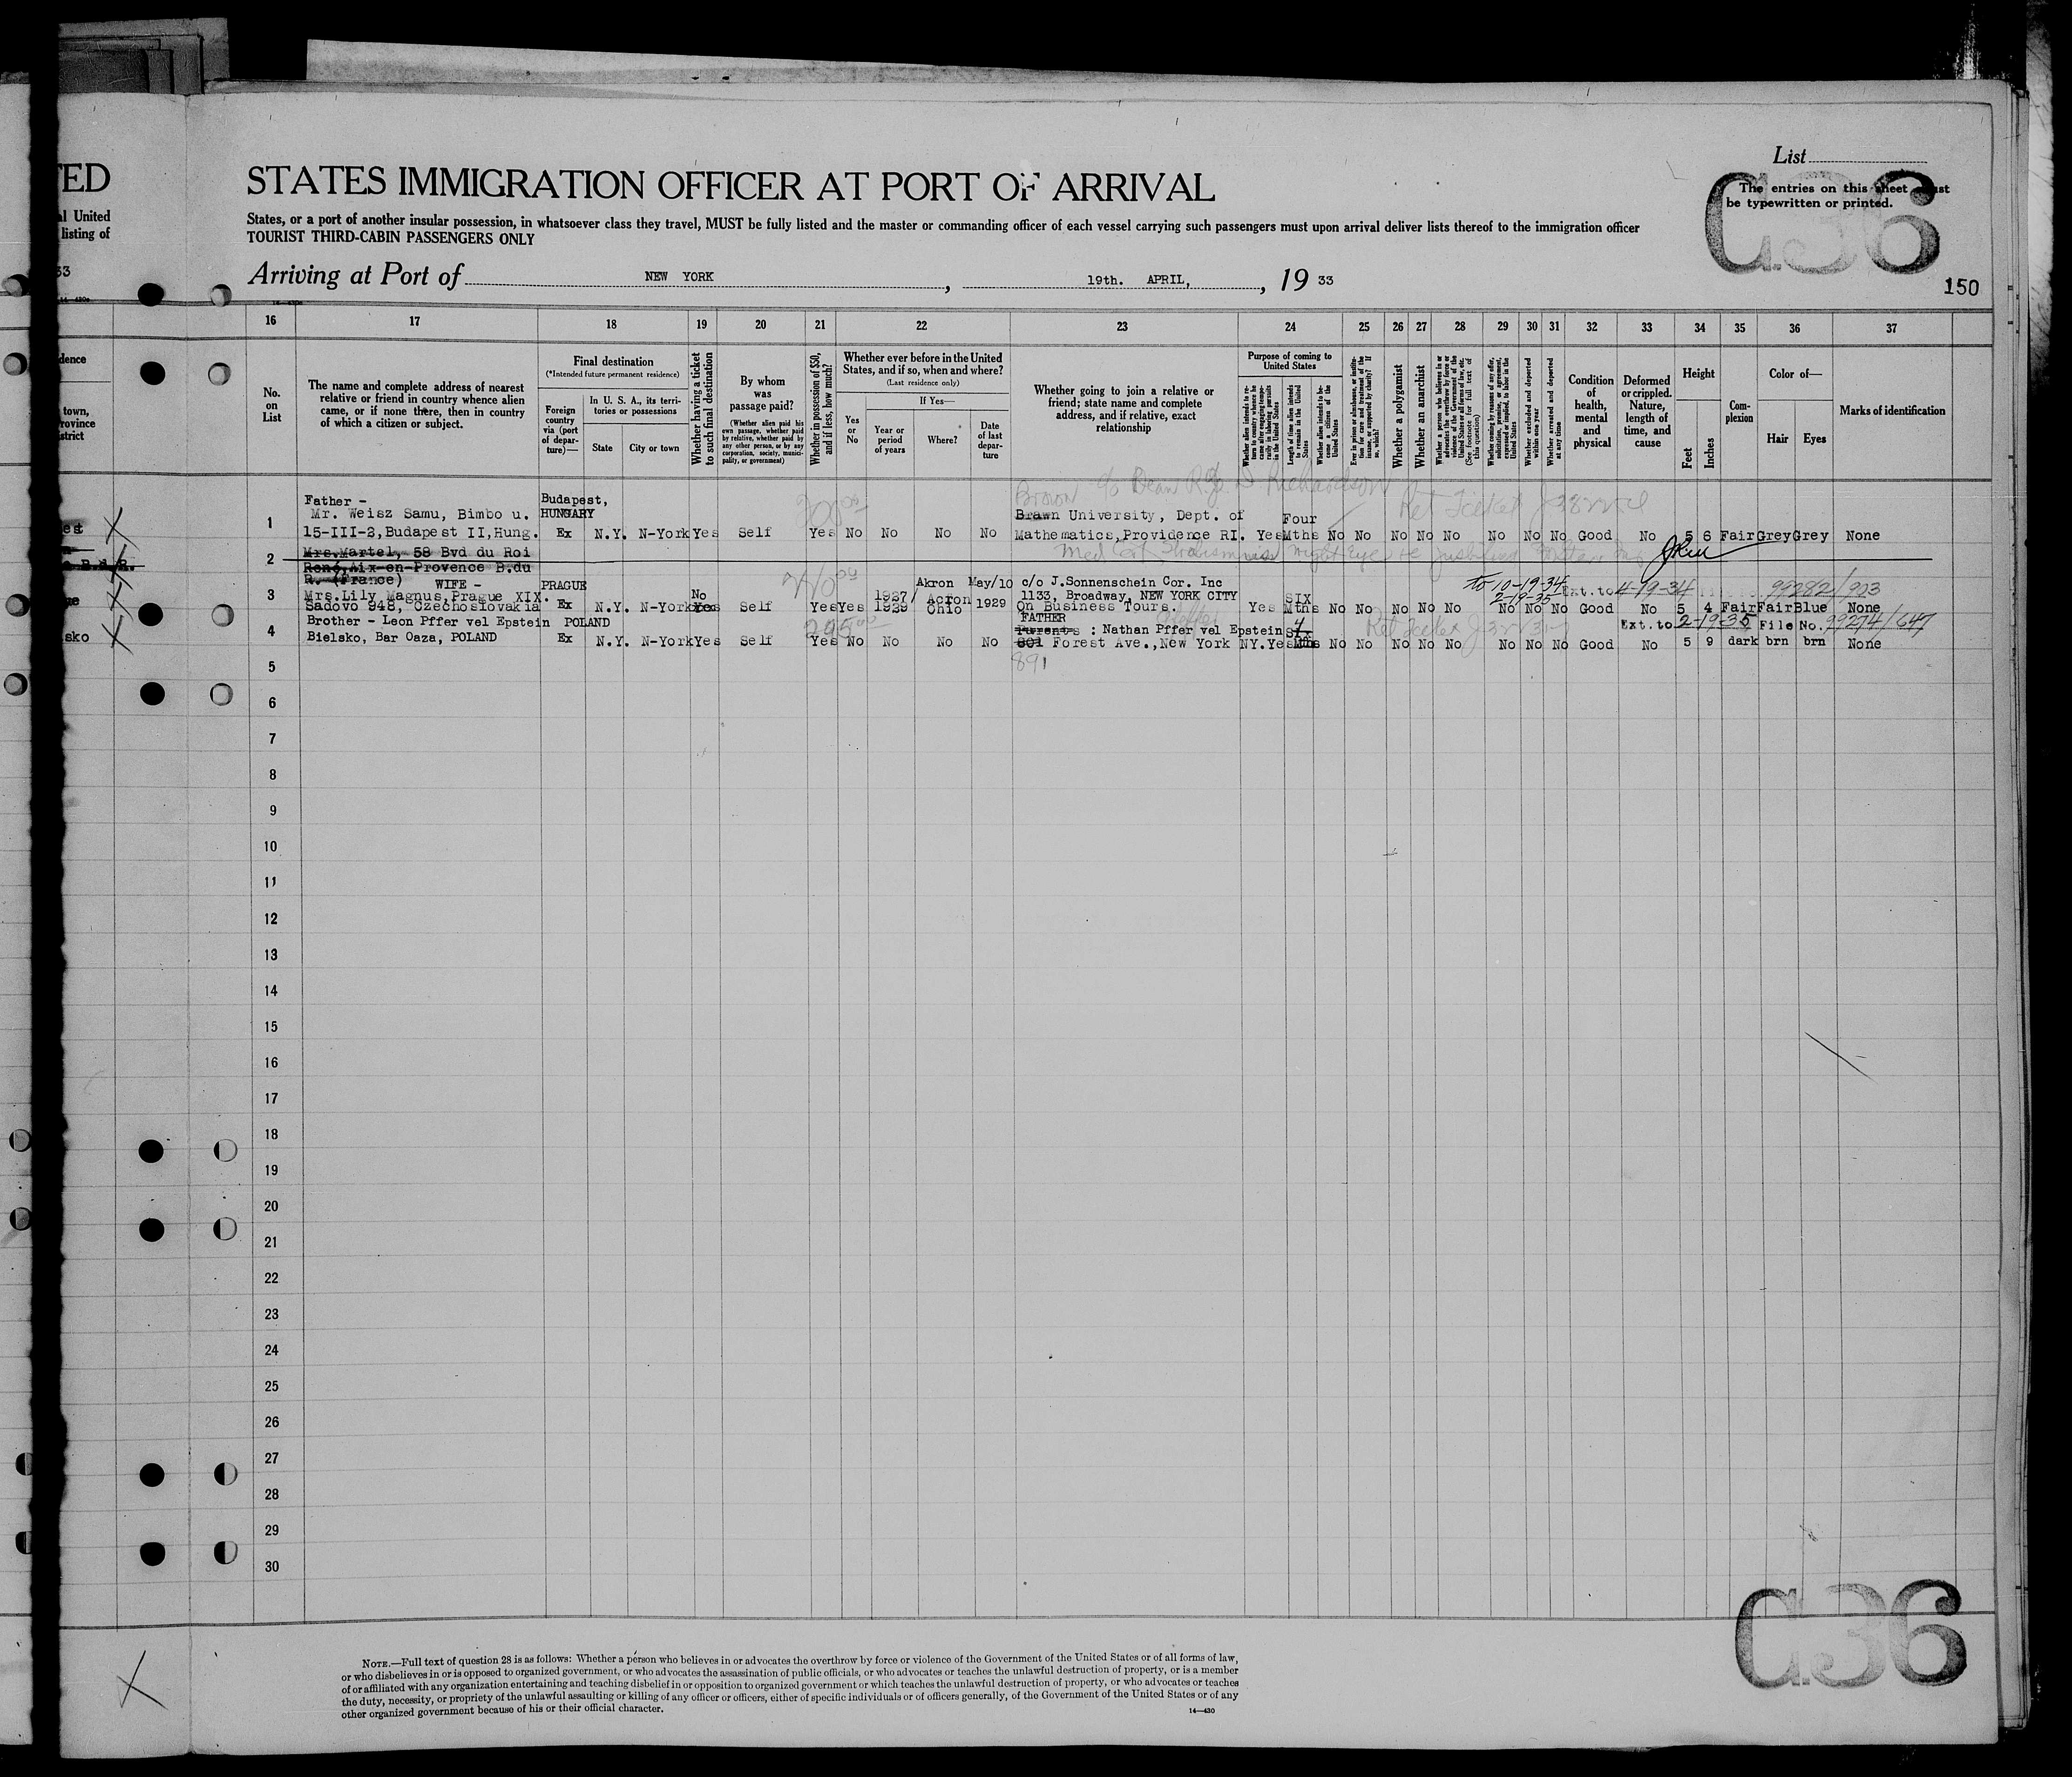 List
C36
The entries on this sheet must
be typewritten or printed.
TED
STATES IMMIGRATION OFFICER AT PORT OF ARRIVAL
al United
listing of
States, or a port of another insular possession, in whatsoever class they travel, MUST be fully listed and the master or commanding officer of each vessel carrying such passengers must upon arrival deliver lists thereof to the immigration officer
TOURIST THIRD-CABIN PASSENGERS ONLY
33
Arriving at Port of NEW YORK, 19th. APRIL, 19 33
150
16 17 18 19 20 21 22 23 24 25 26 27 28 29 30 31 32 33 34 35 36 37
dence
town,
rovince
strict
No.
on
List
The name and complete address of nearest
relative or friend in country whence alien
came, or if none there, then in country
of which a citizen or subject.
Final destination
(*Intended future permanent residence)
Foreign
country
via (port
of depar-
ture)—
In U. S. A., its terri-
tories or possessions
State
City or town
Whether having a ticket
to such final destination
By whom
was
passage paid?
(Whether alien paid his
own passage, whether paid
by relative, whether paid by
any other person, or by any
corporation, society, munici-
pality, or government)
Whether in possession of $50,
and if less, how much?
Whether ever before in the United
States, and if so, when and where?
(Last residence only)
Yes
or
No
If Yes—
Year or
period
of years
Where?
Date
of last
depar-
ture
Whether going to join a relative or
friend; state name and complete
address, and if relative, exact
relationship
Purpose of coming to
United States
Whether alien intends to re-
turn to country whence he
came after engaging tempo-
rarily in laboring pursuits
in the United States
Length of time alien intends
to remain in the United
States
Whether alien intends to be-
come a citizen of the
United States
Ever in prison or almshouse, or institu-
tion for care and treatment of the
insane, or supported by charity? If
so, which?
Whether a polygamist
Whether an anarchist
Whether a person who believes in or
advocates the overthrow by force or
violence of the Government of the
United States or all forms of law, etc.
(See footnote for full text of
this question)
Whether coming by reasons of any offer,
solicitation, promise, or agreement,
expressed or implied, to labor in the
United States
Whether excluded and deported
within one year
Whether arrested and deported
at any time
Condition
of
health,
mental
and
physical
Deformed
or crippled.
Nature,
length of
time, and
cause
Height
Feet
Inches
Com-
plexion
Color of—
Hair
Eyes
Marks of identification
Brown c/o Dean R.G.D. Richardson
Father -
Mr. Weisz Samu, Bimbo u.
Budapest,
HUNGARY
Brawn University, Dept. of
Four
Ret Ticket
1 15-III-2, Budapest II,Hung. Ex N.Y. N-York Yes Self Yes No No No No Mathematics,Providence RI. Yes Mths No No No No No No No No Good No 5 6 Fair Grey Grey None
2 Mrs.Martel, 58 Bvd du Roi
René,Aix-en-Provence B.du
R. (France)
WIFE -
PRAGUE
Akron May/10
c/o J.Sonnenschein Cor. Inc
to 10-19-34
2-19-35
Ext.to 4-19-34
99282/903
3 Mrs.Lily Magnus,Prague XIX.
No
1927/
Acron
1133, Broadway, NEW YORK CITY
SIX
Sadovo 948, Czechoslovakia Ex N.Y. N-York Yes Self Yes Yes 1929 Ohio 1929 On Business Tours. Yes Mths No No No No No No No No Good No 5 4 Fair Fair Blue None
Brother - Leon Pffer vel Epstein POLAND
FATHER
Parents : Nathan Pffer vel Epstein
Ret Ticket
Ext.to 2-19-35 File No. 99274/647
4 Bielsko, Bar Oaza, POLAND Ex N.Y. N-York Yes Self Yes No No No No 801 Forest Ave.,New York NY. Yes Mths No No No No No No No No Good No 5 9 dark brn brn None
891
5
6
7
8
9
10
11
12
13
14
15
16
17
18
19
20
21
22
23
24
25
26
27
28
29
30
C36
NOTE.—Full text of question 28 is as follows: Whether a person who believes in or advocates the overthrow by force or violence of the Government of the United States or of all forms of law,
or who disbelieves in or is opposed to organized government, or who advocates the assassination of public officials, or who advocates or teaches the unlawful destruction of property, or is a member
of or affiliated with any organization entertaining and teaching disbelief in or opposition to organized government or which teaches the unlawful destruction of property, or who advocates or teaches
the duty, necessity, or propriety of the unlawful assaulting or killing of any officer or officers, either of specific individuals or of officers generally, of the Government of the United States or of any
other organized government because of his or their official character.
14—430